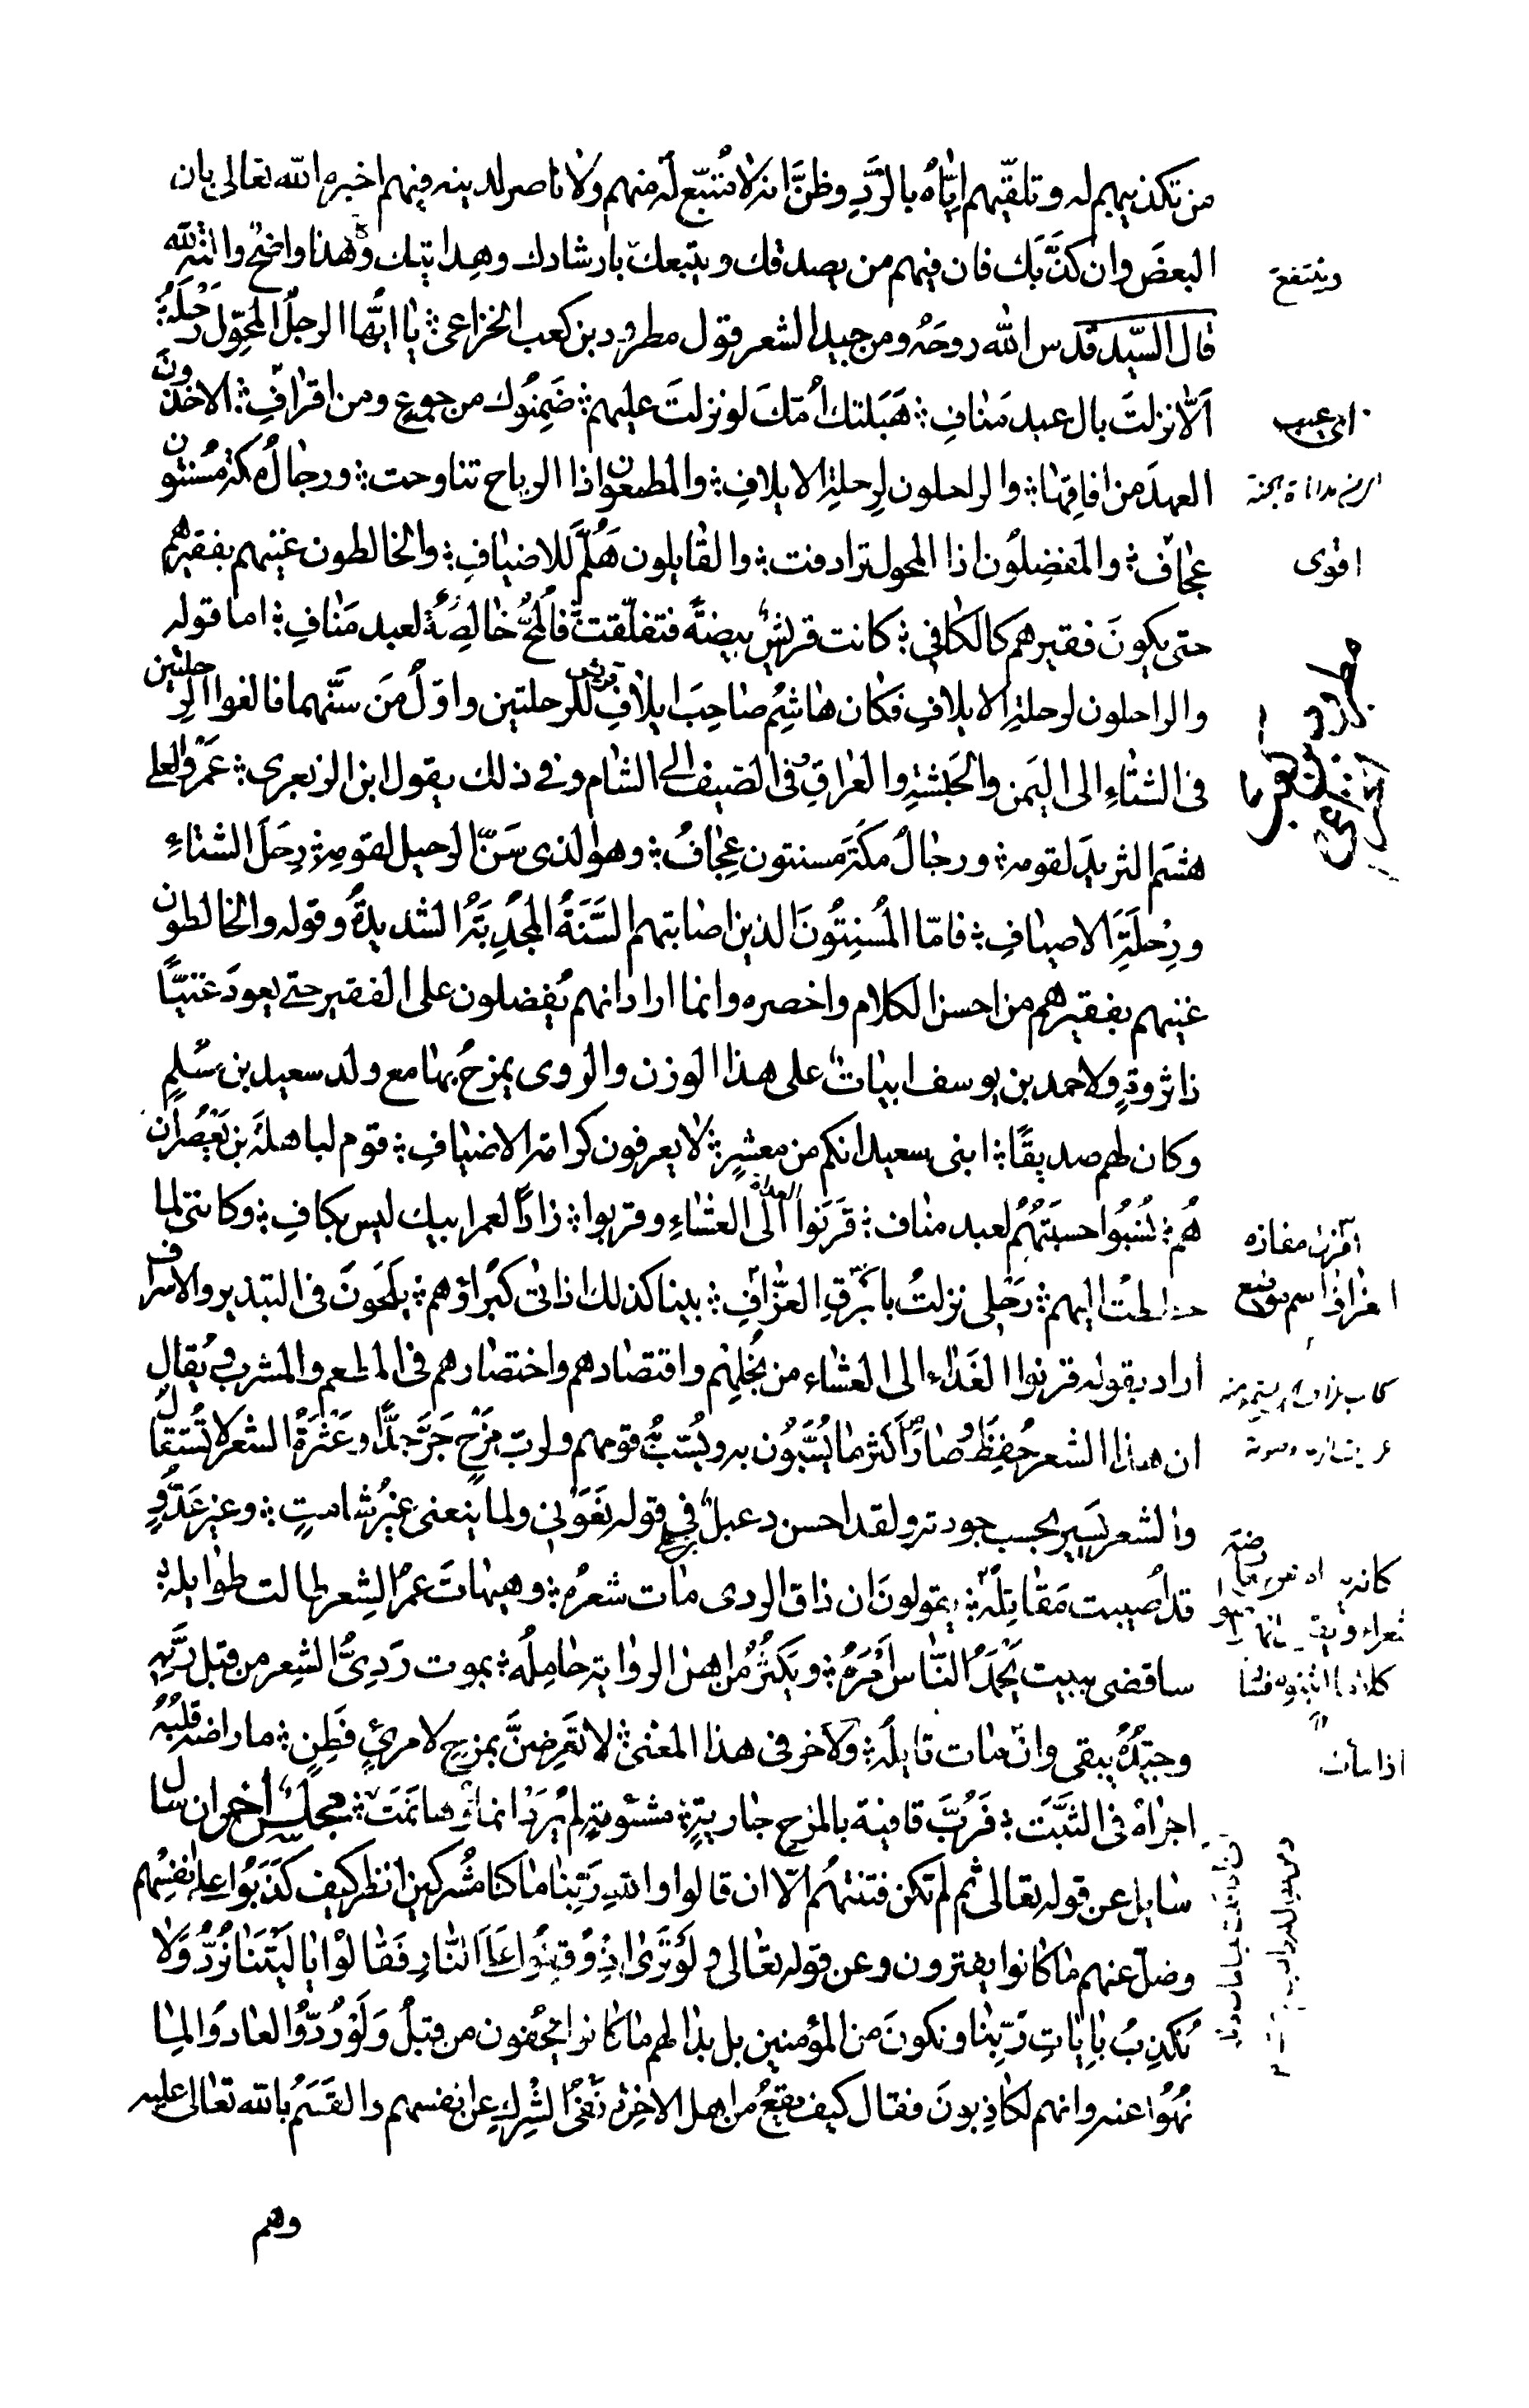 من تكذيبهم له وتلقّيهم ايّاه بالرَّدِ وظنَّ انه لا مُتّبع له منهم ولا ناصر لدينه فيهم اخبره الله تعالى بان
البعضَ وان كذَّبَك فان فيهم من يصدقك ويتبعك بارشادك وهدايتك وهذا واضحٌ والمنة لله
وينتفع
قال السّيد قدس الله روحَهُ ومن جيد الشعر قول مطرود بن كعب الخزاعى ؛ يا ايُّها الرجلُ المحوّل رَحْلَهُ ؛
اَلّا نزلتَ بال عبد مَنافِ ؛ هَبَلتك اُمّكَ لو نزلتَ عليهم ؛ ضَمِنُوك من جوعٍ ومن اقرافِ ؛ الاخذونَ
اى عيب
العهدَ من افاقِها ؛ والراحلون لِرحلةِ الايلافِ ؛ والمطعمون اذا الرياح تناوحت ؛ ورجالُ مكة مُسْنتون
عجافٌ ؛ والمفضِلُون اذا المحول ترادفت ؛ والقايلون هَلُمَّ للاضيافِ ؛ والخالطون غنيهم بفقيرهم
اقوى
حتى يكونَ فقيرهم كالكافى ؛ كانت قريشٌ بيضةً فتفلّقت فالمحُّ خالِصةٌ لعبد مَنافِ ؛ اما قوله
والراحلون لرحلةِ الايلافِ فكان هاشِمٌ صاحبَ ايلافِ قريش للرحلتين واوّلُ مَن سَنَّهما فالفوا الرحلتين
فى الشتاءِ الى اليمن والحَبَشةِ والعراقِ وفى الصيف الى الشام وفى ذلك يقول ابن الزبعرى ؛ عَمْرو العلى
هشَم الثريدَ لقومه ؛ ورجالُ مكَةَ مسنتون عِجافُ ؛ وهو الذى سَنَّ الرحيل لقومِه ؛ رِحَلَ الشتاءِ
ورِحْلَةَ الاصيافِ ؛ فامّا المُسْنِتُونَ الذين اصابتهم السَّنَةُ المُجْدِبَةُ الشديدةُ وقوله والخالطون
غنيهم بفقيرهم من احسن الكلام واخصره وانما اراد انهم يُفضلون على الفقير حتى يعودَ غنيًّا
ذا ثروةٍ ولاحمد بن يوسف ابياتٌ على هذا الوزن والروى يمزحُ بها مع ولد سعيد بن سَلمٍ
وكان لهم صديقًا ؛ ابنى سعيد انكم من معشرٍ ؛ لا يعرفون كرامة الاضيافِ ؛ قوم لباهلةَ بن يَعْصُر ان
هُم ؛ نُسِبُوا حسبتَهُمُ لعبد مناف ؛ قَرَنُوا الغداء الى العشاءِ وقربوا ؛ زادًا لعمر ابيك ليس بكافِ ؛ وكاننى لما
حططتُ اليهم ؛ رَحْلى نزلتُ بابْرَقِ العزّافِ ؛ بينا كذلك اذ اتى كُبراؤهم ؛ يلحَونَ فى التبذير والاسراف
العزاف اسم موضع
اراد بقوله قرنوا الغَداء الى العشاء من بُخلِهم واقتصادهم واختصارهم فى المطعم والمشرب ويُقال
ان هذا الشعر حُفِظَ وصار اكثر ما يُسَبُّون به ويُسَبُّ قومهم ولرب مَزْحٍ جَرَّ جدًّا وعَثْرَةُ الشعر لا تُستقال
والشعر يَسير بحسب جودته ولقد احسن دعبلٌ فى قوله نَعَوْنى ولما ينعنى غيرُ شامتٍ ؛ وغير عَدُوٍّ
قد اُصيبت مَقاتِلُه ؛ يقولون ان ذاق الردى مات شعرُه ؛ وهيهاتَ عمرُ الشِعر طالت طوايله ؛
ساقضى ببيت يَحْمَدُ النّاس اَمْرَهُ ؛ ويَكثُرُ من اهل الرواية حامِلُه ؛ يموت رَدِىُّ الشِعر من قبل رَبِّهِ
وجيّدُهُ يبقى وان مات قايلُه ؛ ولآخر فى هذا المعنى ؛ لا تَعْرِضَنَّ بمزحٍ لامرئٍ فَطِنٍ ؛ ما راضه قلبُهُ
اجراهُ فى الشَّبَتَ ؛ فَرُبَّ قافية بالمزح جاريةٍ ؛ مشئومةٍ لم يُرَدْ انماؤها نَمَتَ ؛ مجلسٌ اخر وان سال
سايل عن قوله تعالى ثم لم تكن فتنتهُم الّا ان قالوا والله رَبّنا ما كنا مُشركين انظر كيف كَذَبُوا على انفسِهم
وضلّ عنهم ما كانوا يفترون وعن قوله تعالى ولَوْ تَرىٰ اِذْ وُقِفُوا على النّارِ فَقالُوْا يا لَيْتَنا نُرَدُّ وَلا
نُكَذِبُ باِياتِ رَبِّنا ونكونَ من المؤمنين بل بدا لهم ما كانوا يُخفون من قبلُ وَلَوْ رُدُّوا لعادوا لما
نُهُوا عنه وانهم لكاذِبونَ فقال كيف يقعُ من اهل الاخرة نَفْىُ الشِركِ عن انفسهم والقَسَمُ بالله تعالى عليه
وهم